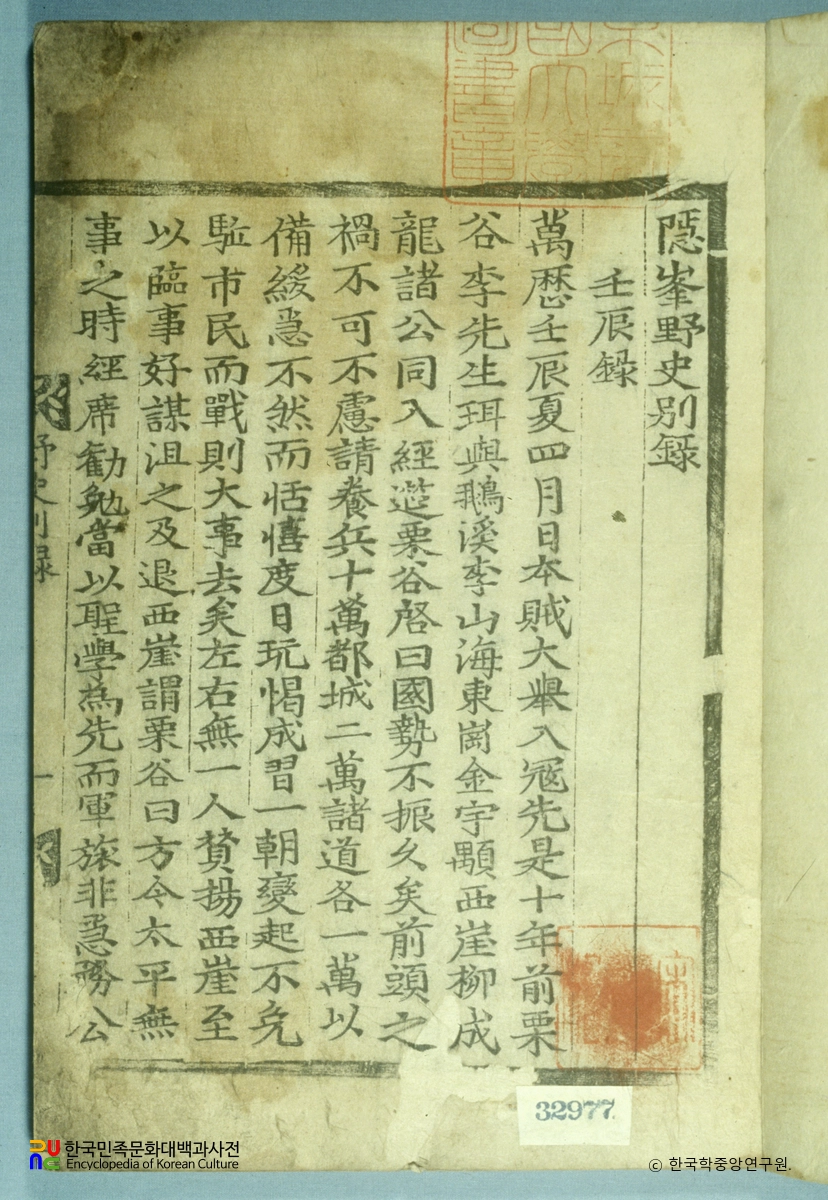 隱峯野史別錄
壬辰錄
萬歷壬辰夏四月日本賊大擧入寇先是十年前栗
谷李先生珥與鵝溪李山海東崗金宇顒西崖柳成
龍諸公同入經筵栗谷啓曰國勢不振久矣前頭之
禍不可不慮請養兵十萬都城二萬諸道各一萬以
備緩急不然而恬憘度日玩愒成習一朝變起不免
駈市民而戰則大事去矣左右無一人賛揚西崖至
以臨事好謀沮之及退西崖謂栗谷曰方今太平無
事之時經席勸勉當以聖學爲先而軍旅非急務公
野史別錄
一
32977
한국민족문화대백과사전
Encyclopedia of Korean Culture
© 한국학중앙연구원.